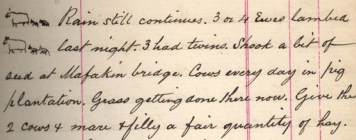 Rain still continues. 3 or 4 Ewes lambed
last night. 3 had twins. Shook a bit of
seed at Mafakin bridge. Cows every day in pig
plantation. Grass getting done there now. Give the
2 cows & mare & filly a fair quantity of hay.